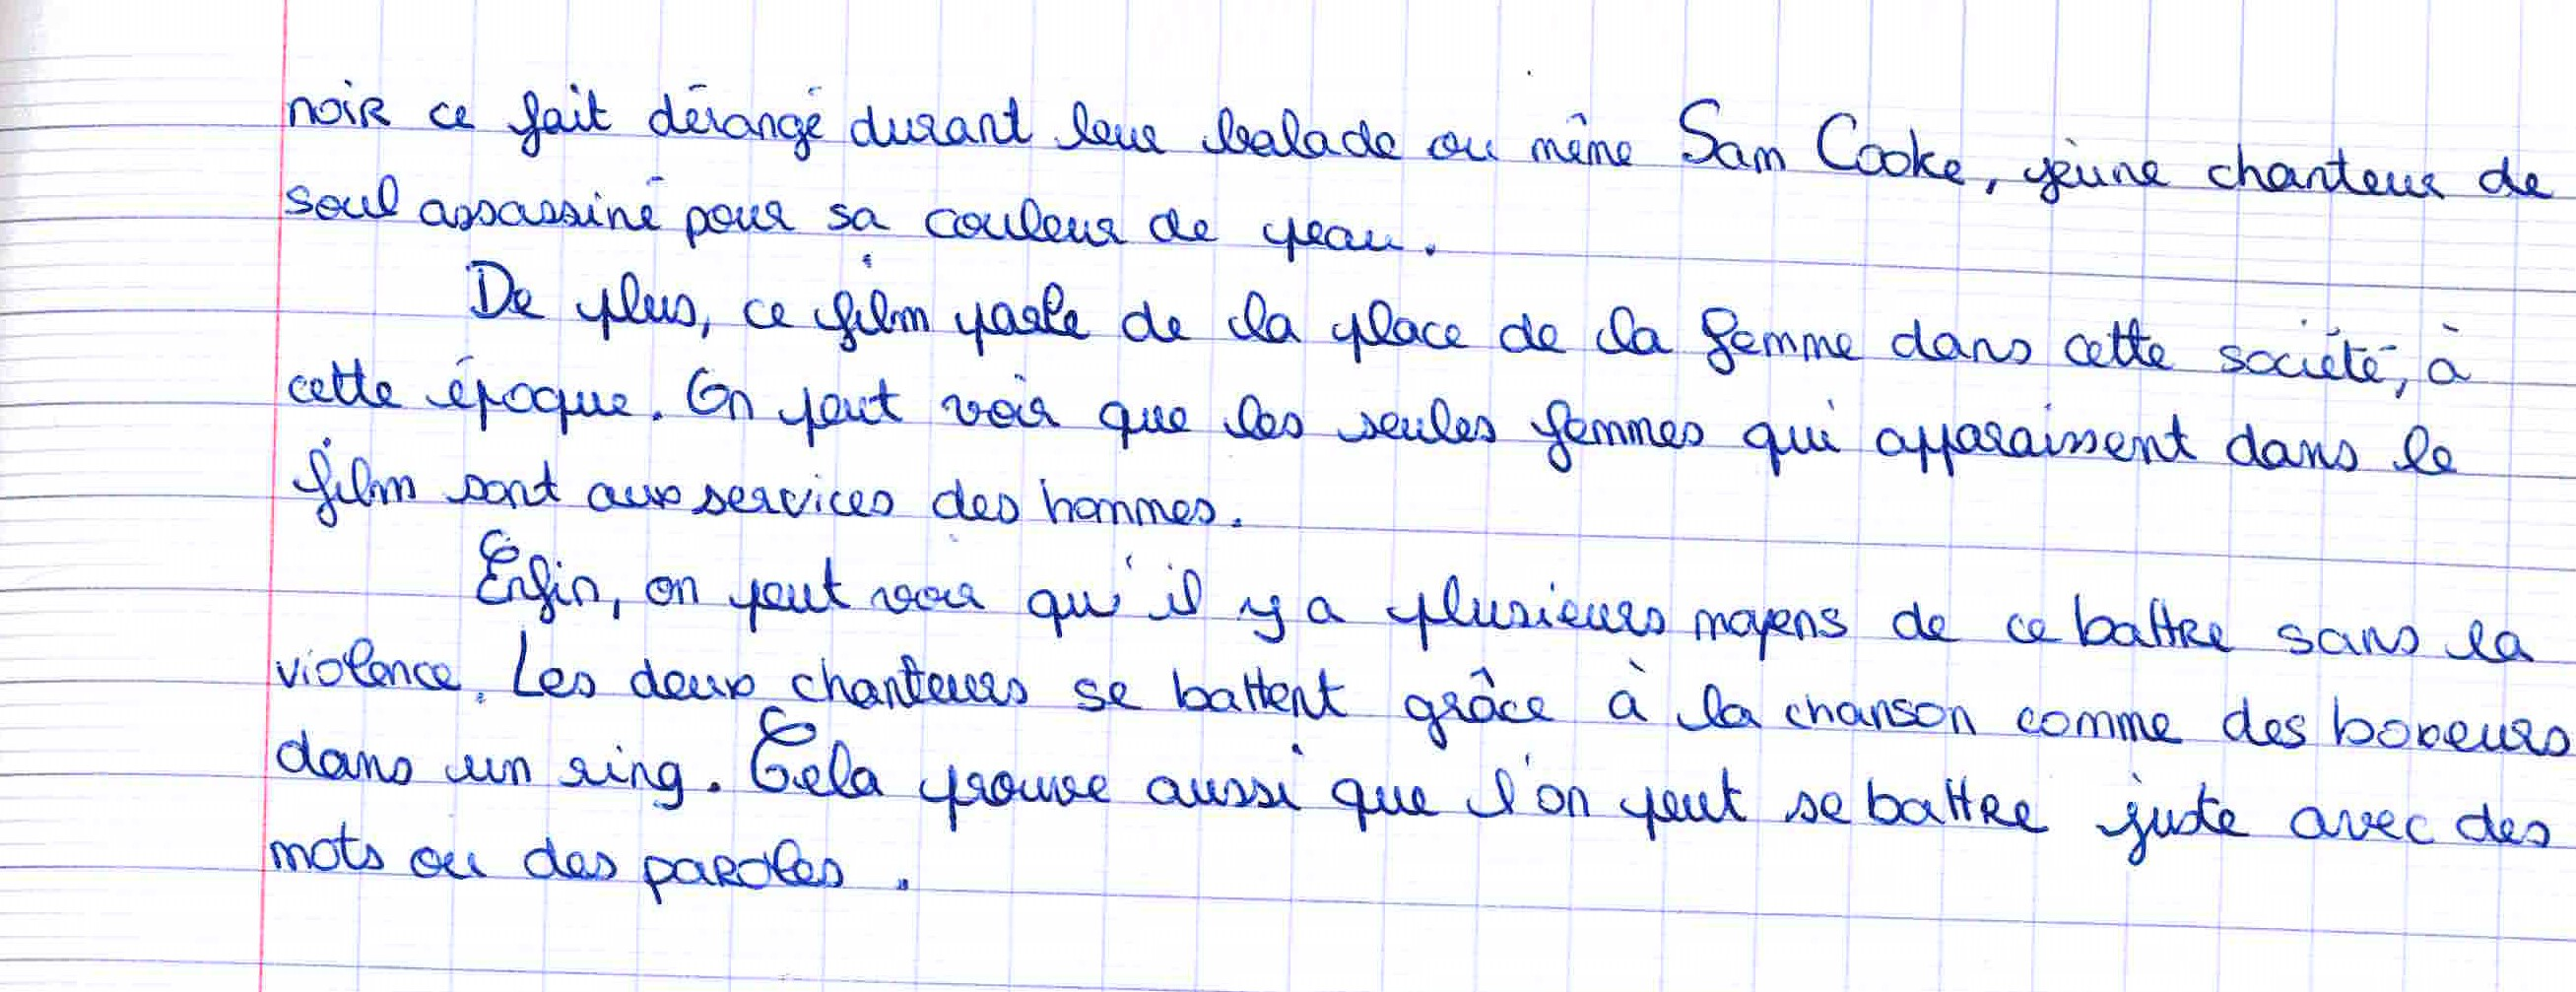 noir ce fait dérangé durant leur balade ou même Sam Cooke, jeune chanteur de
soul assassiné pour sa couleur de peau.
De plus, ce film parle de la place de la femme dans cette société, à
cette époque. On peut voir que les seules femmes qui apparaissent dans le
film sont aux services des hommes.
Enfin, on peut voir qu'il y a plusieurs moyens de ce battre sans la
violence. Les deux chanteurs se battent grâce à la chanson comme des boxeurs
dans un ring. Cela prouve aussi que l'on peut se battre juste avec des
mots ou des paroles.